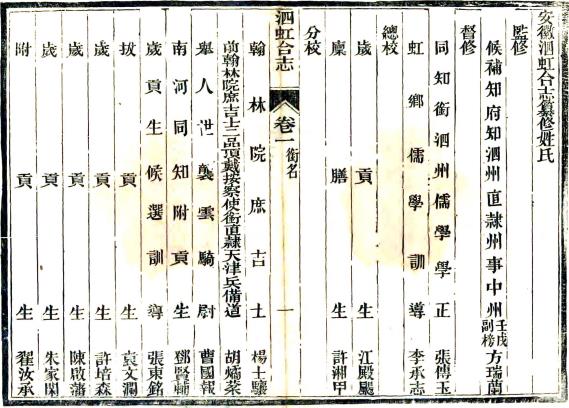 安徽泗虹合志纂修姓氏
監修
候補知府知泗州直隸州事中州壬戌副榜方瑞蘭
督修
同知銜泗州儒學學正張傳玉
虹鄉儒學訓導李承志
總校
歲貢生江殿颺
廩膳生許湘甲
分校
泗虹合志 卷一 銜名 一
翰林院庶吉士楊士驤
前翰林院庶吉士二品頂戴按察使銜直隸天津兵備道胡燏棻
舉人世襲雲騎尉曹國報
南河同知附貢生鄧賢輔
歲貢生候選訓導張東銘
拔貢生袁文瀾
歲貢生許培森
歲貢生陳啟藩
歲貢生朱家閑
附貢生翟汝承